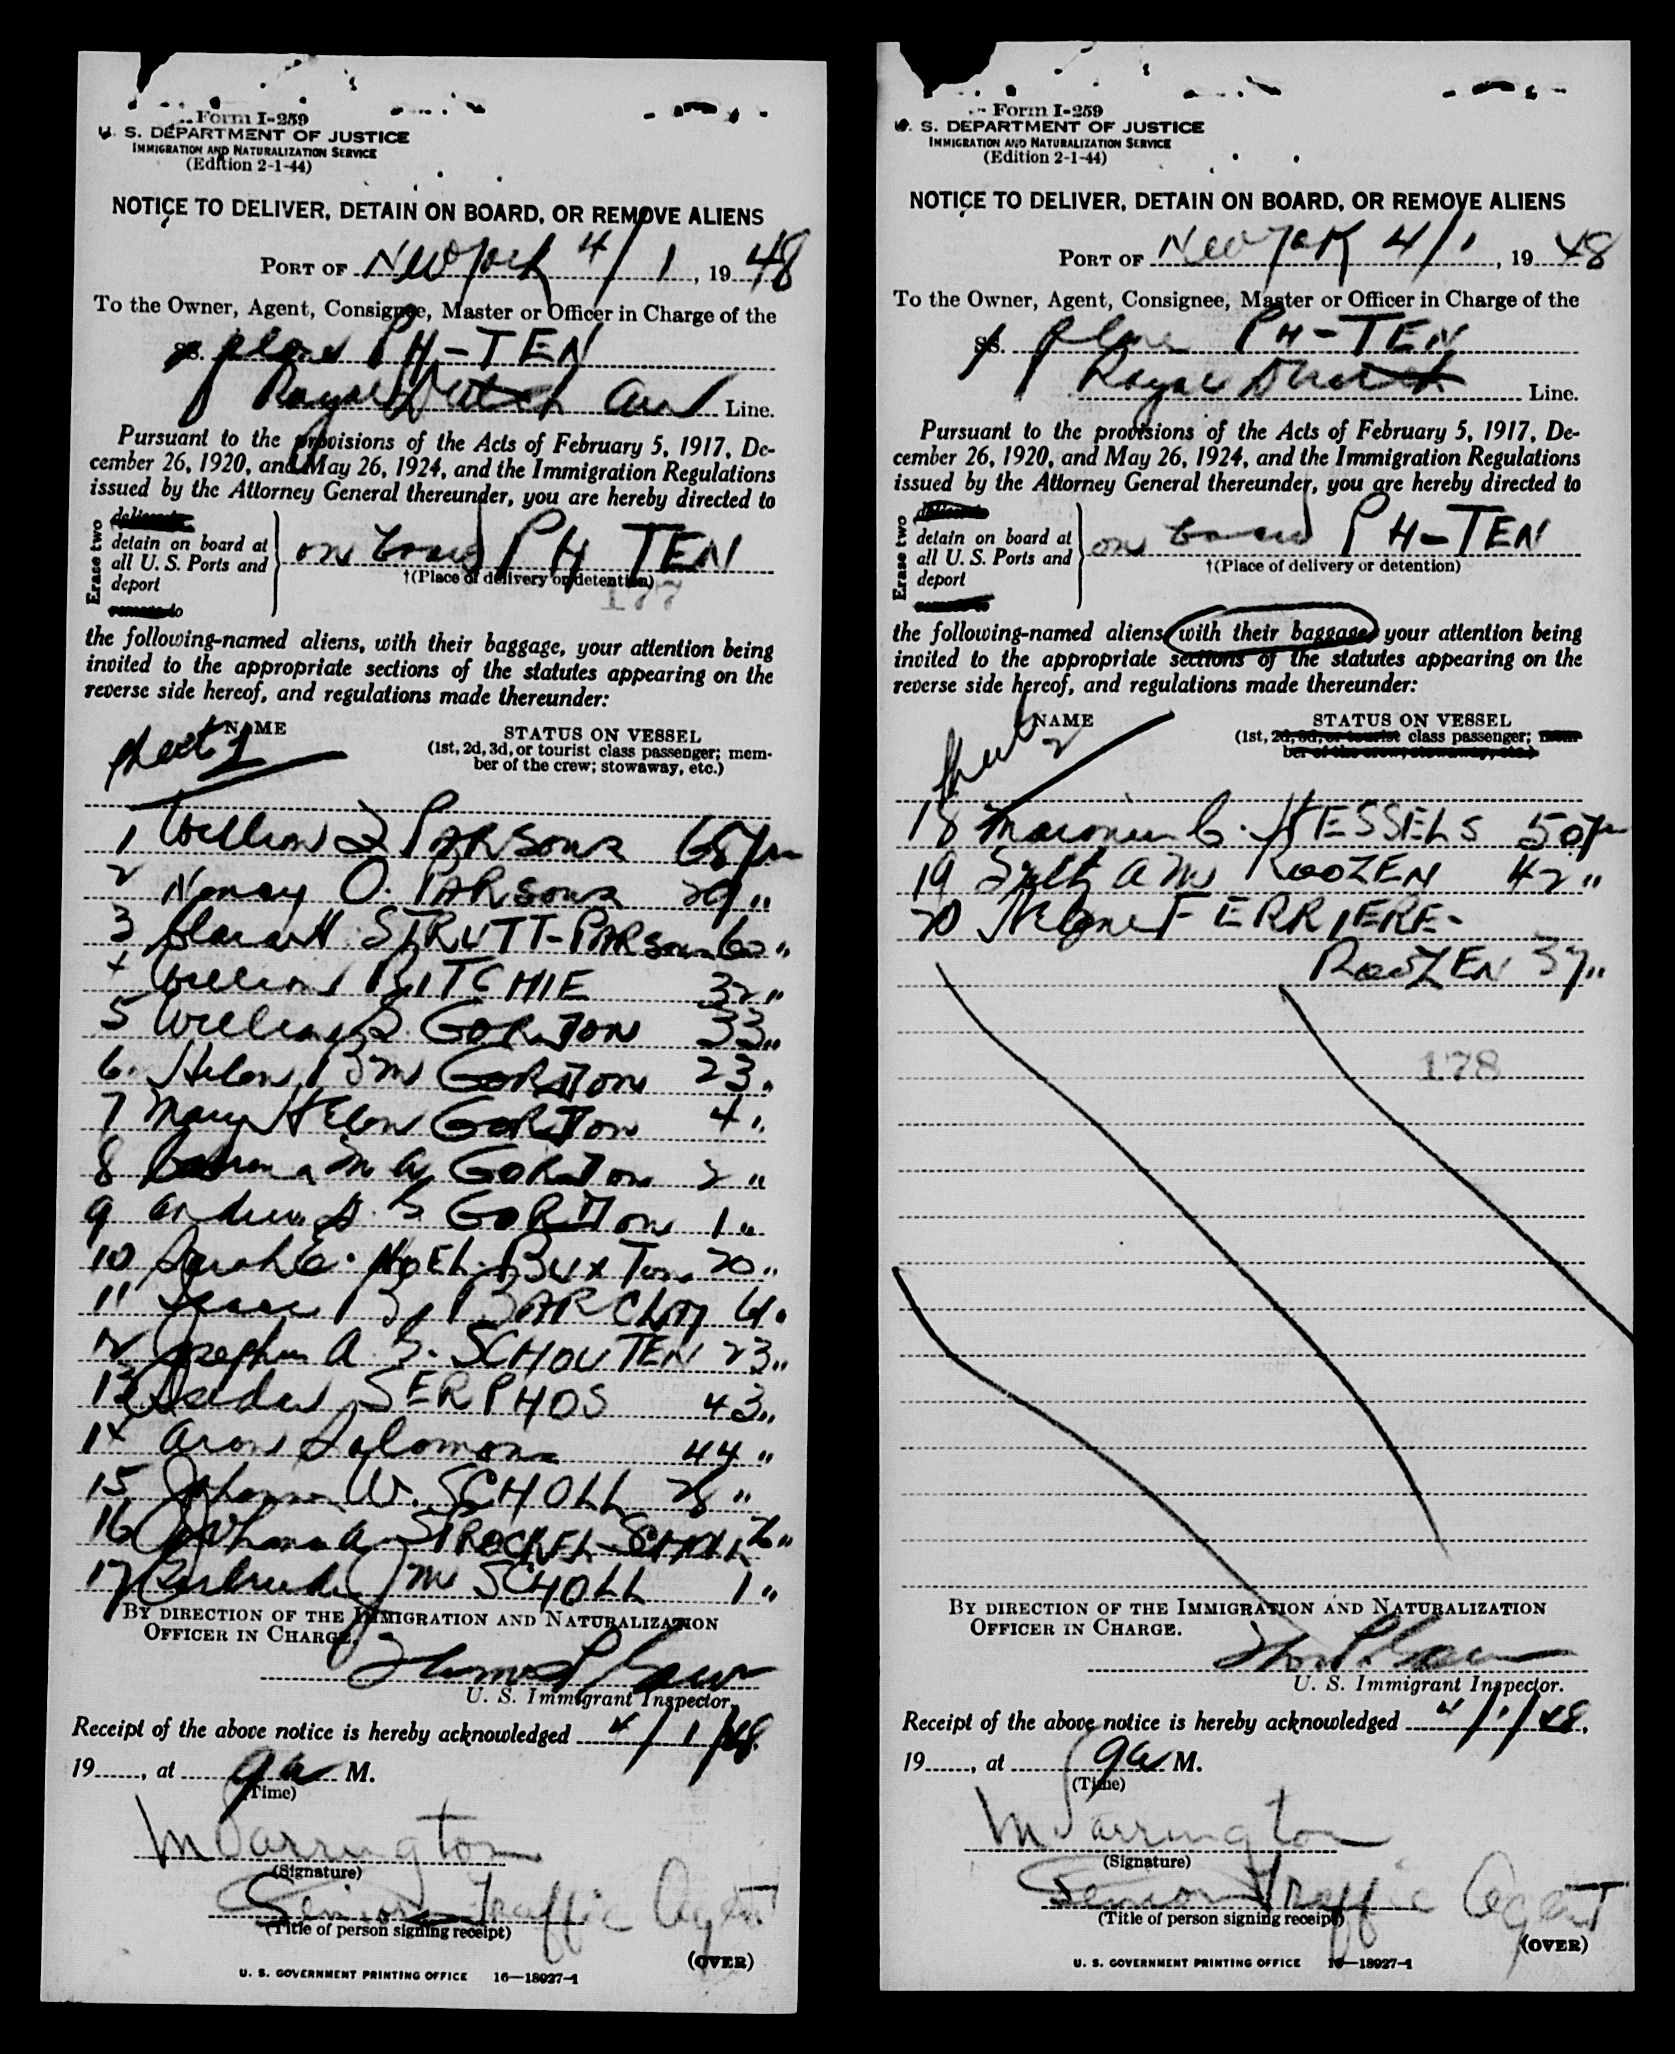 Form I-259
U. S. DEPARTMENT OF JUSTICE
IMMIGRATION AND NATURALIZATION SERVICE
(Edition 2-1-44)
NOTICE TO DELIVER, DETAIN ON BOARD, OR REMOVE ALIENS
PORT OF New York 4/1, 1948
To the Owner, Agent, Consignee, Master or Officer in Charge of the
SS. plane PH-TEN
Royal Dutch Air Line.
Pursuant to the provisions of the Acts of February 5, 1917, De-
cember 26, 1920, and May 26, 1924, and the Immigration Regulations
issued by the Attorney General thereunder, you are hereby directed to
Erase two
deliver to
detain on board at
all U. S. Ports and
deport
remove to
on board PH TEN
†(Place of delivery or detention)
177
the following-named aliens, with their baggage, your attention being
invited to the appropriate sections of the statutes appearing on the
reverse side hereof, and regulations made thereunder:
Sheet 1
NAME
STATUS ON VESSEL
(1st, 2d, 3d, or tourist class passenger; mem-
ber of the crew; stowaway, etc.)
1 William PARSONS
2 Nancy O. PARSONS 29 "
3 Clara H STRUTT-PARSONS 60 "
4 William RITCHIE 32 "
5 William S. GORDON 33 "
6. Helen B M GORDON 23 "
7 Mary Helen GORDON 4 "
8 M A GORDON 2 "
9 Andrew GORDON 1 "
10 Sarah E. NOEL-BUXTON 20 "
11 BARCLAY
12 A. SCHOUTEN 23 "
13 Isidor SERPHOS 43 "
14 Aron Salomons 44 "
15 Johannes W. SCHOLL 28 "
16 Johanna A STROCKEL-SCHOLL
17 Gertrude J M SCHOLL 1 "
BY DIRECTION OF THE IMMIGRATION AND NATURALIZATION
OFFICER IN CHARGE.
U. S. Immigrant Inspector.
Receipt of the above notice is hereby acknowledged 4/1/48.
19......, at 9 a M.
(Time)
M Darrington
(Signature)
Senior Traffic Agent
(Title of person signing receipt)
(OVER)
U. S. GOVERNMENT PRINTING OFFICE 16—18927-1
Form I-259
U. S. DEPARTMENT OF JUSTICE
IMMIGRATION AND NATURALIZATION SERVICE
(Edition 2-1-44)
NOTICE TO DELIVER, DETAIN ON BOARD, OR REMOVE ALIENS
PORT OF New York 4/1, 1948
To the Owner, Agent, Consignee, Master or Officer in Charge of the
SS. plane PH-TEN
Royal Dutch Line.
Pursuant to the provisions of the Acts of February 5, 1917, De-
cember 26, 1920, and May 26, 1924, and the Immigration Regulations
issued by the Attorney General thereunder, you are hereby directed to
Erase two
deliver to
detain on board at
all U. S. Ports and
deport
remove to
on board PH-TEN
†(Place of delivery or detention)
the following-named aliens, with their baggage, your attention being
invited to the appropriate sections of the statutes appearing on the
reverse side hereof, and regulations made thereunder:
Sheet 2
NAME
STATUS ON VESSEL
(1st, 2d, 3d, or tourist class passenger; mem-
ber of the crew; stowaway, etc.)
18 C. HESSELS 50 yr
19 A M ROOZEN 42 "
20 FERRIERE-
ROOZEN 37 "
178
BY DIRECTION OF THE IMMIGRATION AND NATURALIZATION
OFFICER IN CHARGE.
U. S. Immigrant Inspector.
Receipt of the above notice is hereby acknowledged 4/1/48.
19......, at 9 a M.
(Time)
M Darrington
(Signature)
Senior Traffic Agent
(Title of person signing receipt)
(OVER)
U. S. GOVERNMENT PRINTING OFFICE 16—18927-1